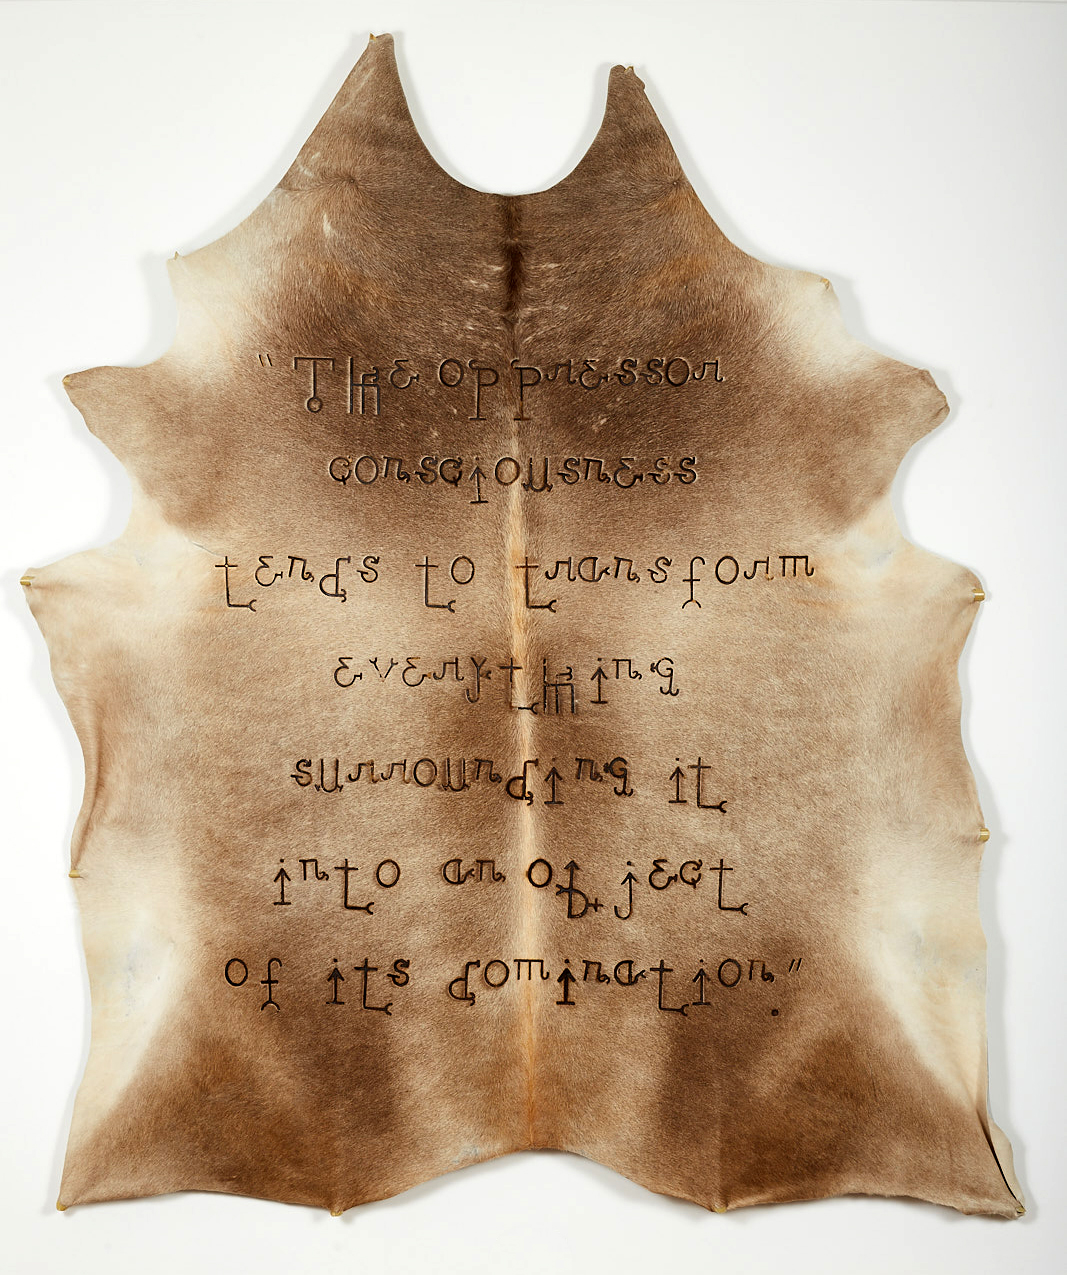 "The oppressor
consciousness
tends to transform
everything
surrounding it
into an object
of its domination."